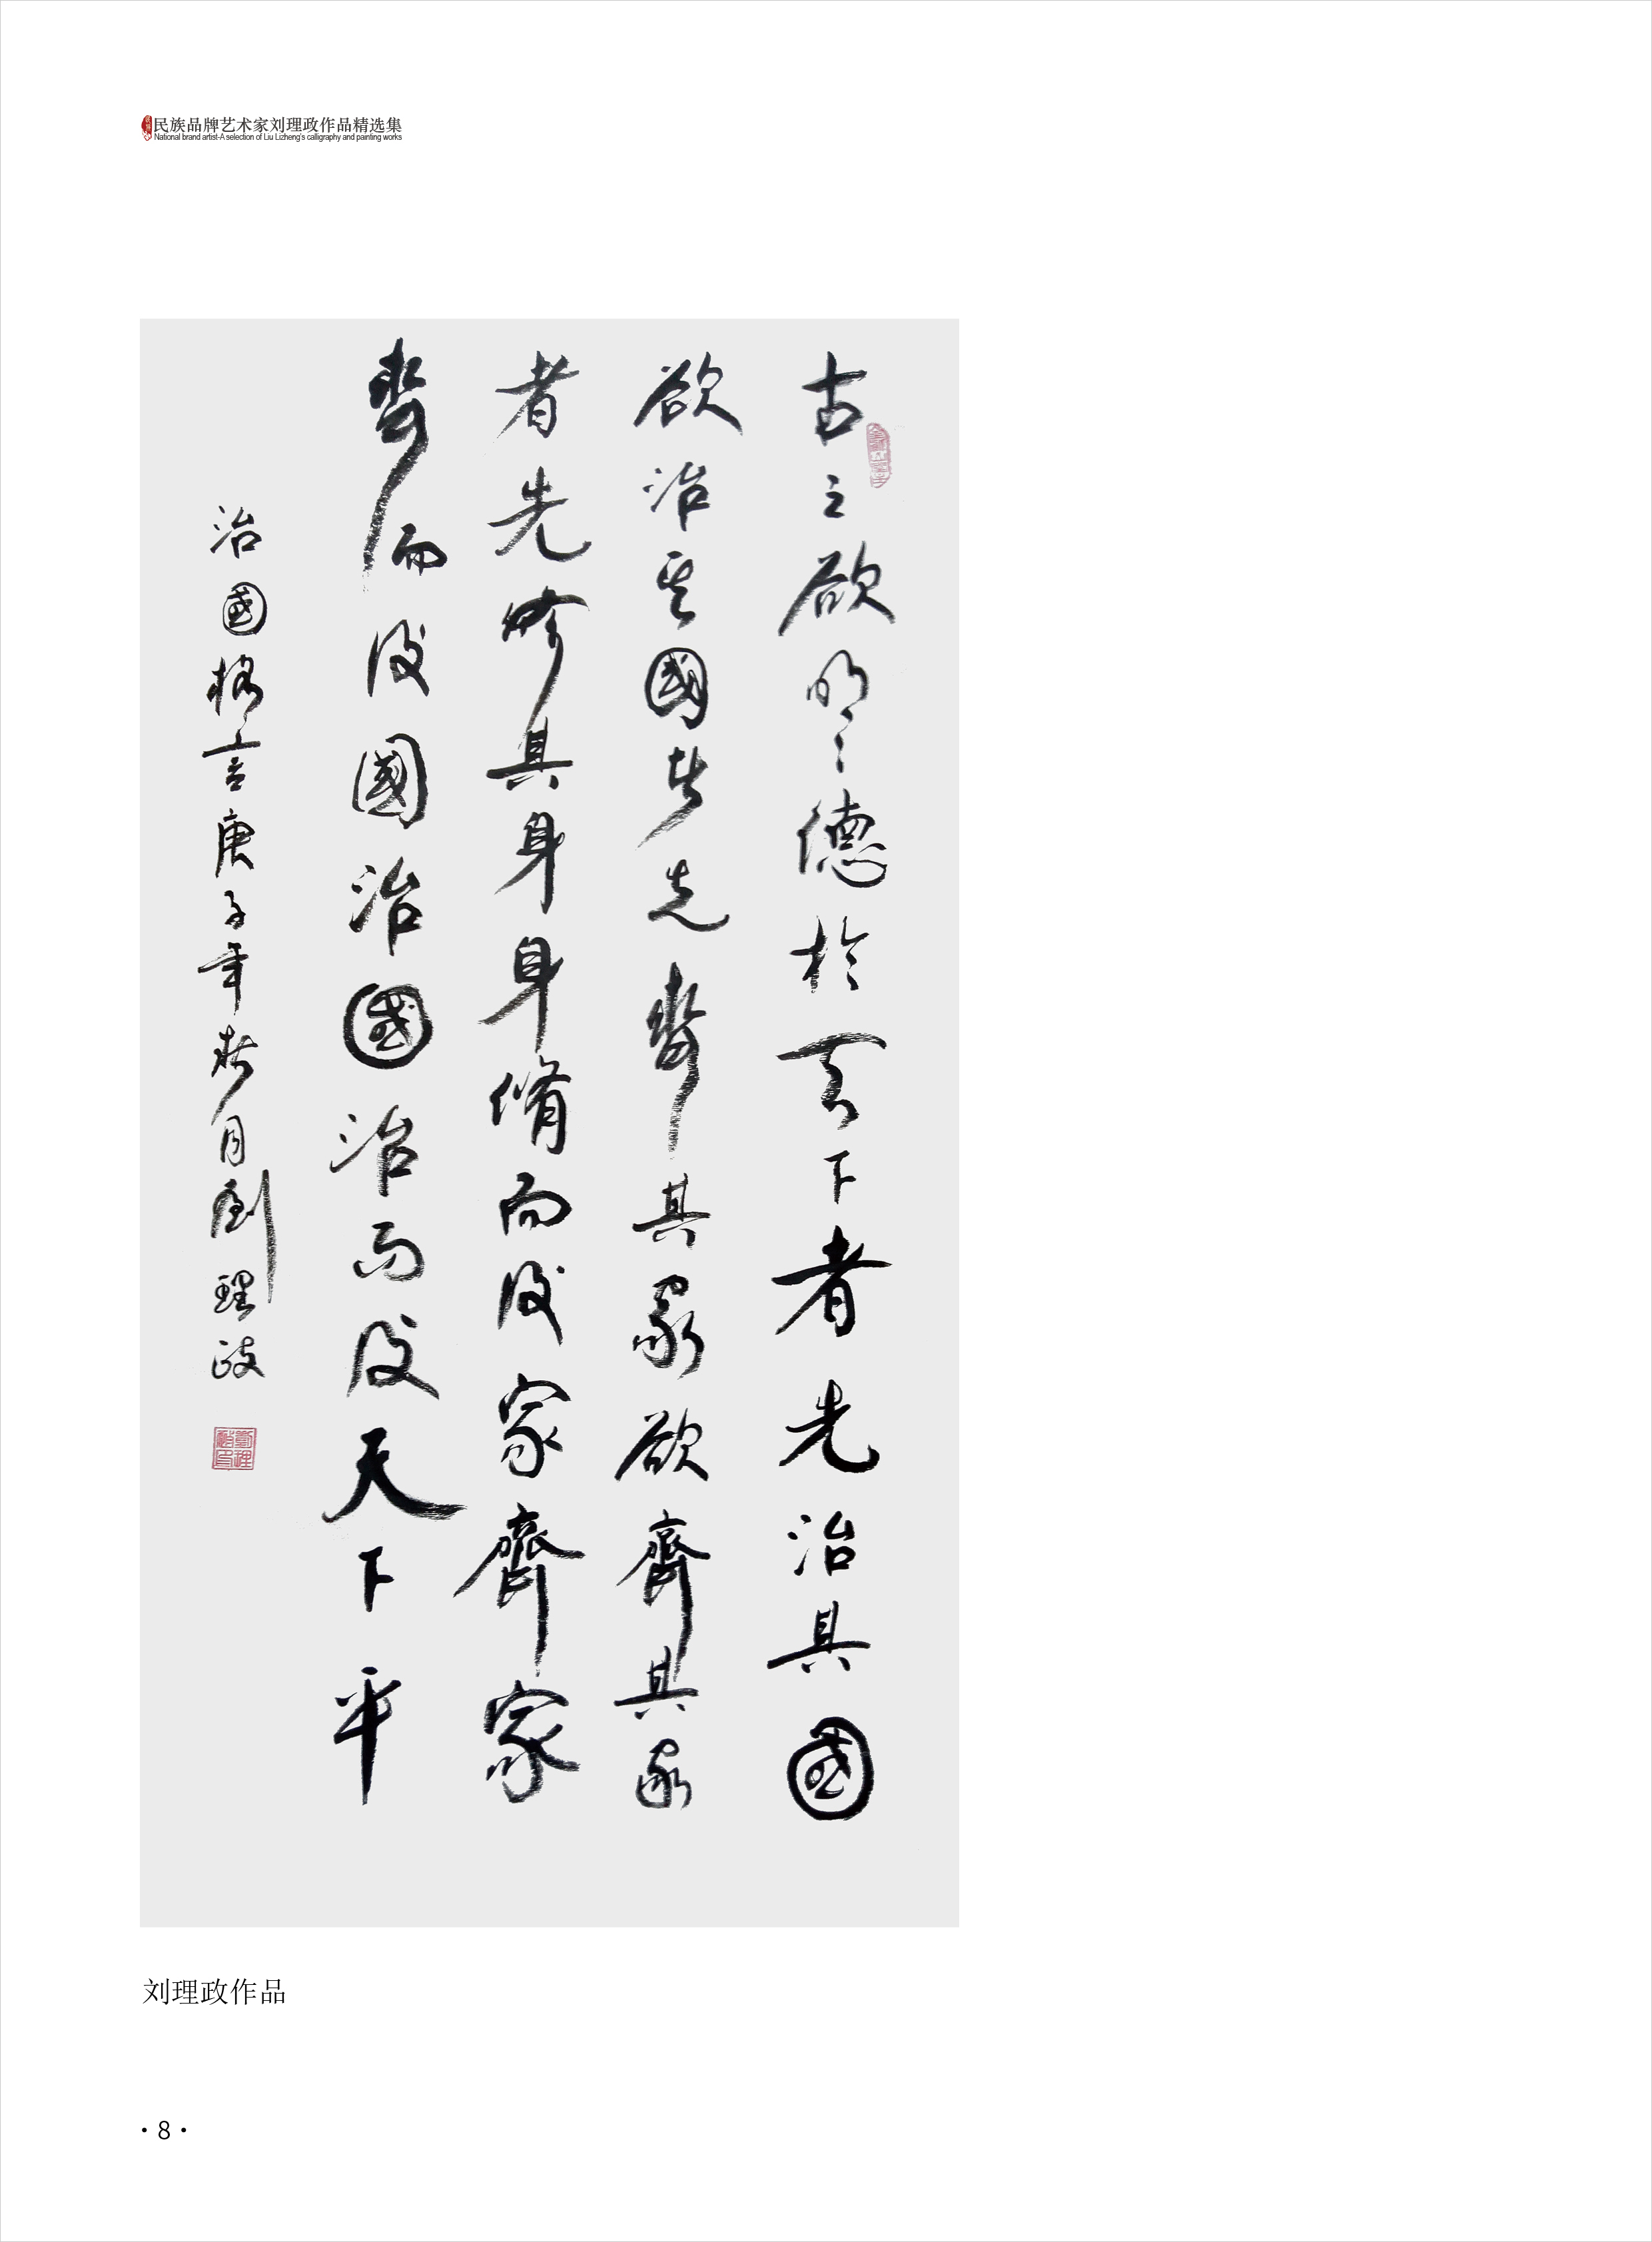 民族品牌艺术家刘理政作品精选集
National brand artist-A selection of Liu Lizheng's calligraphy and painting works
古之欲明明德於天下者先治其國
欲治其國者先齊其家欲齊其家
者先修其身身脩而後家齊家
齊而後國治國治而後天下平
治國格言庚子年秋月劉理政
劉理政印
刘理政作品
·8·